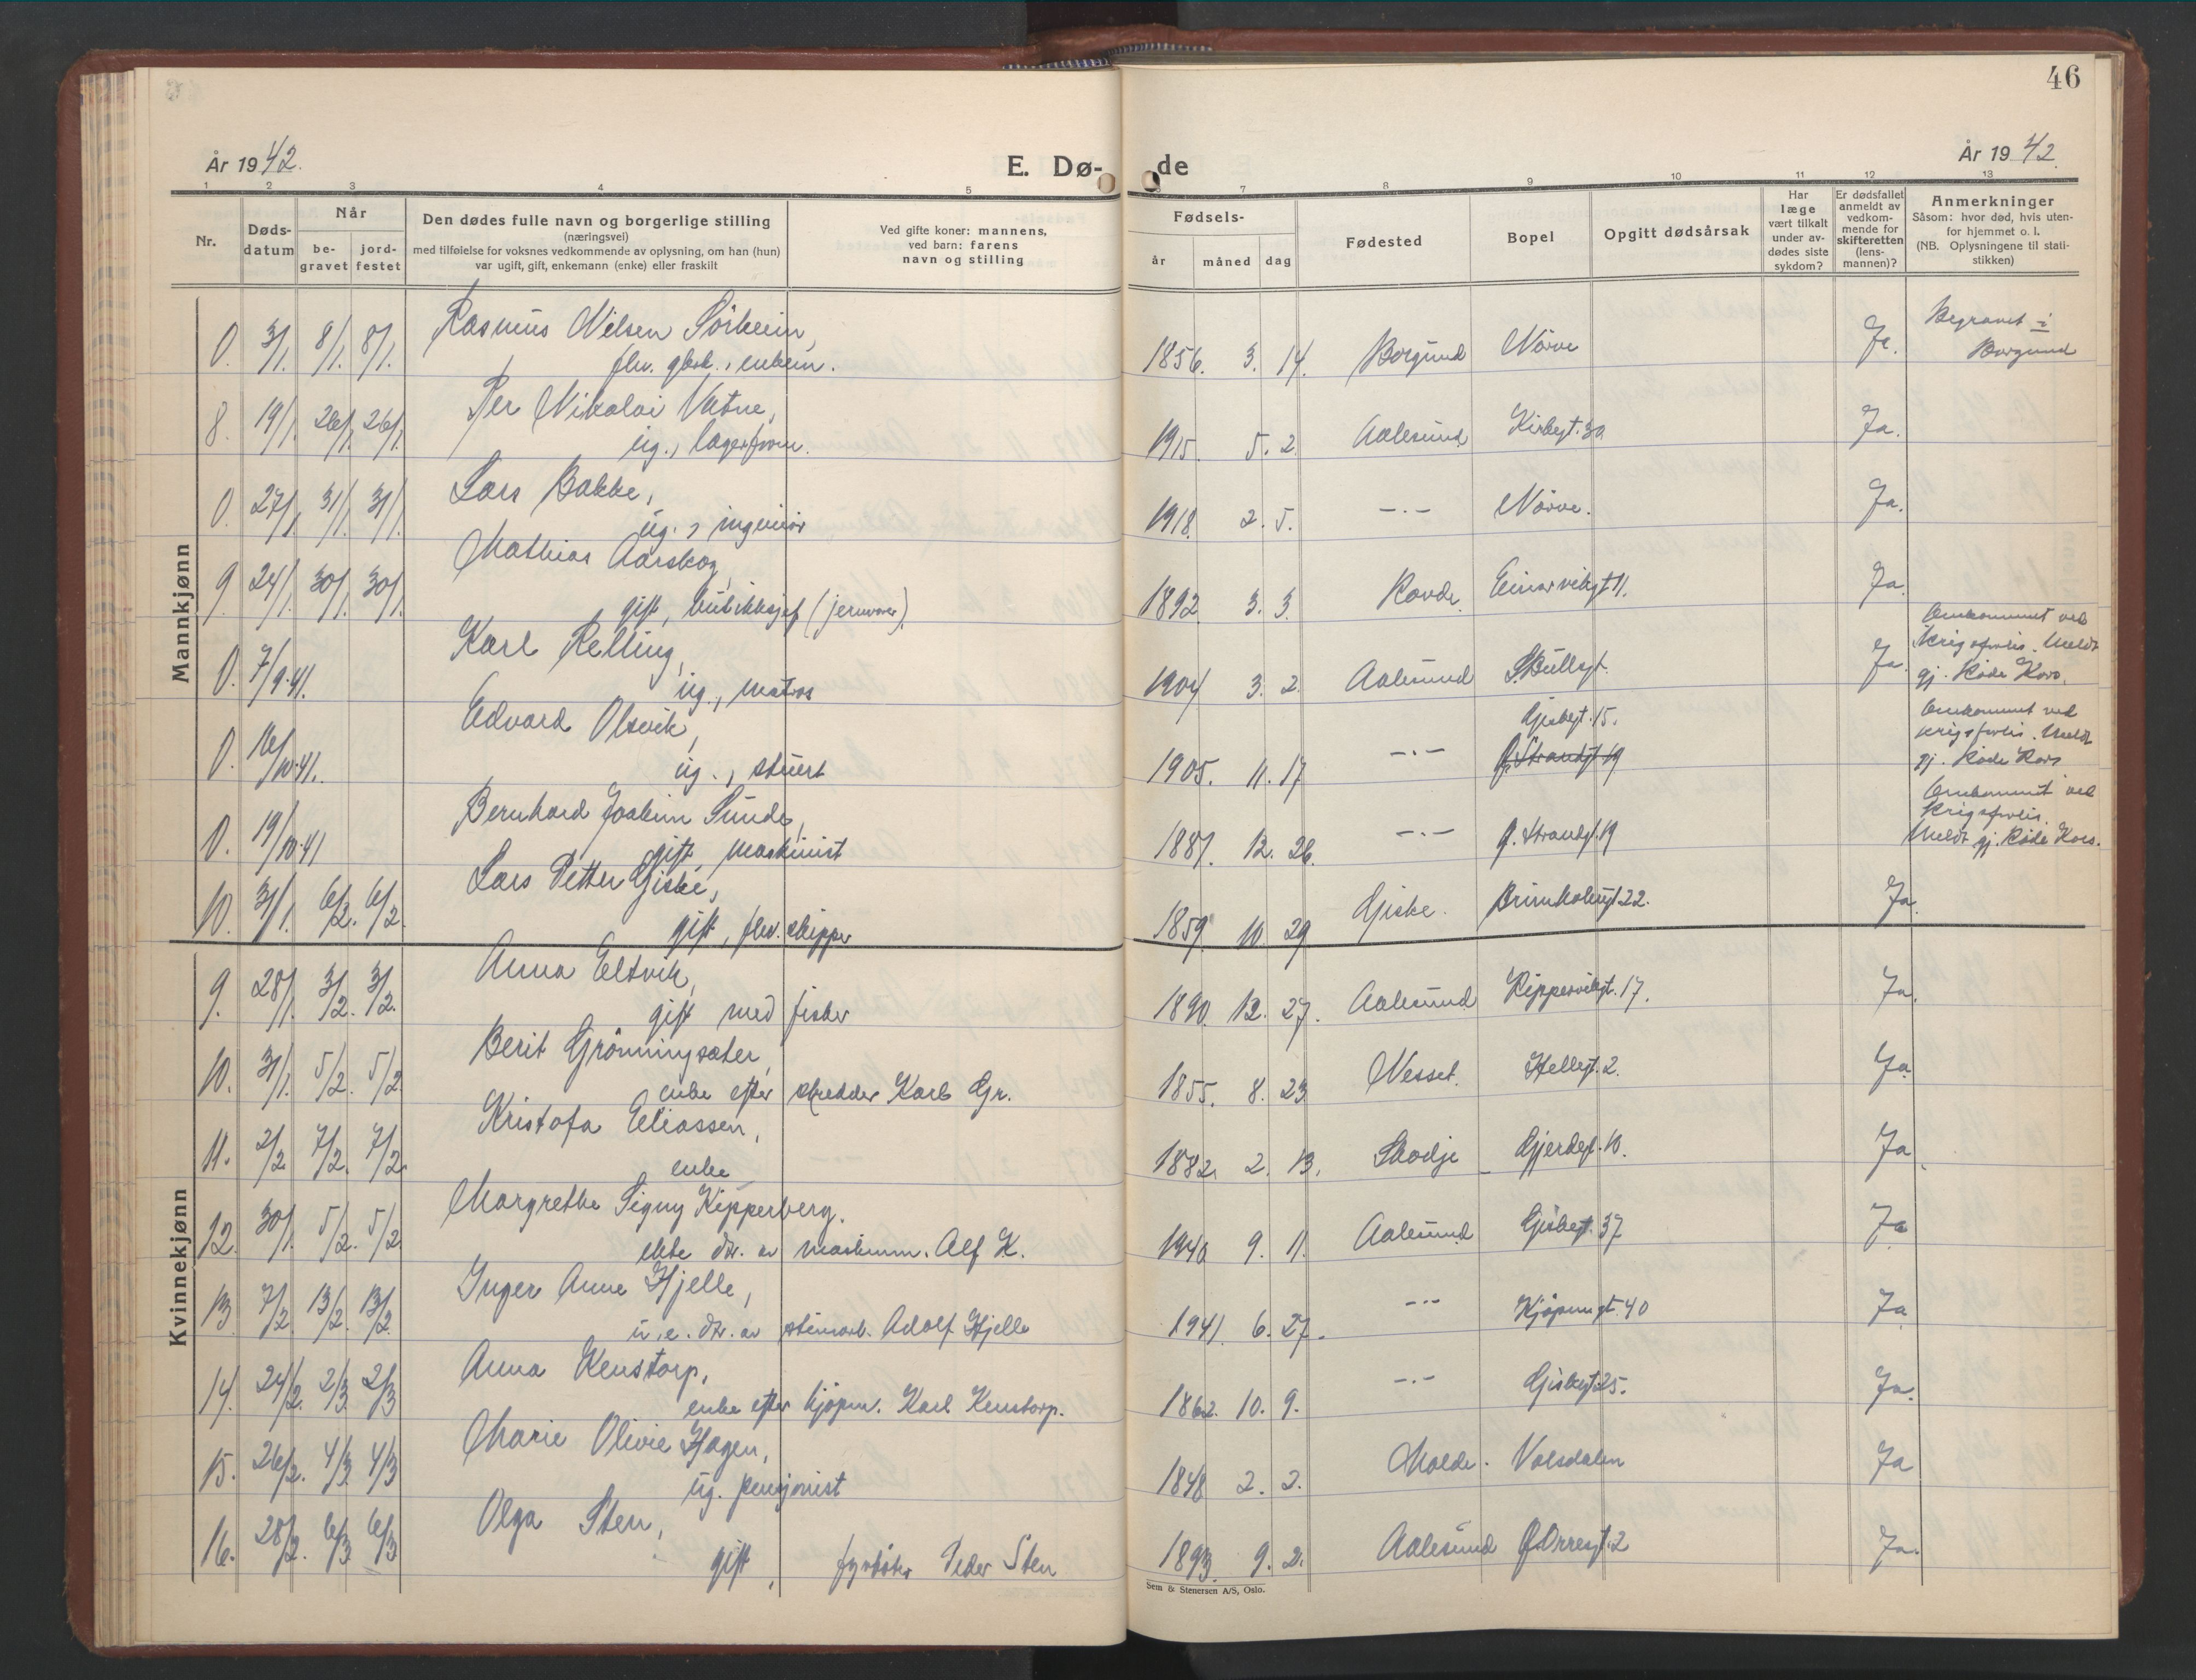 46
År 1942.
E. Dø-
de
År 1942.
1 2 3 4 5 6 7 8 9 10 11 12 13
Nr.
Døds-
datum
Når
be-
gravet
jord-
festet
Den dødes fulle navn og borgerlige stilling
(næringsvei)
med tilføielse for voksnes vedkommende av oplysning, om han (hun)
var ugift, gift, enkemann (enke) eller fraskilt
Ved gifte koner: mannens,
ved barn: farens
navn og stilling
Fødsels-
år måned dag
Fødested
Bopel
Opgitt dødsårsak
Har
læge
vært tilkalt
under av-
dødes siste
sykdom?
Er dødsfallet
anmeldt av
vedkom-
mende for
skifteretten
(lens-
mannen)?
Anmerkninger
Såsom: hvor død, hvis uten-
for hjemmet o. l.
(NB. Oplysningene til stati-
stikken)
Mannkjønn
0. 3/1. 8/1. 8/1. Rasmus Nilsen Sörheim,
flv. gbrk., enkem. 1856. 3. 14. Borgund Nörve Ja. Begravet i
Borgund
8. 19/1. 26/1. 26/1. Per Nikolai Vatne,
ug., lagerform. 1915. 5. 2. Aalesund Kirkegt. 30 Ja.
0. 27/1. 31/1. 31/1. Lars Bakke,
ug., ingeniör 1918. 2. 5. -.- Nörve. Ja.
9. 24/1. 30/1. 30/1. Mathias Aarskog,
gift, butikksjef (jernvarer). 1892 3. 3. Rovde. Einarvikgt 11. Ja.
0. 7/9.41. Karl Relling,
ug., matros 1904 3. 2. Aalesund S.Bullsgt. Ja. Omkommet ved
krigsforlis. Meldt
gj. Röde Kors.
0. 16/10.41. Edvard Olsvik,
ug., stuert 1905. 11. 17 -.- Gjskegt. 15.
Ø.Strandgt 19 Omkommet ved
krigsforlis. Meldt
gj. Röde Kors
0. 19/10.41 Bernhard Joakim Sunde,
gift, maskinist 1887. 12. 26. -.- Ø. Strandgt. 19 Omkommet ved
krigsforlis.
Meldt gj. Röde Kors.
10. 31/1. 6/2. 6/2. Lars Petter Giske,
gift, flv. skipper 1859. 10. 29 Giske. Brunholmgt 22. Ja.
Kvinnekjønn
9. 28/1. 3/2. 3/2. Anna Eltvik,
gift med fisker 1890. 12. 27. Aalesund Kippervikgt. 17. Ja.
10. 31/1. 5/2. 5/2 Berit Grönningsæter,
enke efter skredder Karl Gr. 1855. 8. 23 Nesset. Hellegt. 2. Ja.
11. 2/2 7/2. 7/2. Kristofa Eliassen,
enke 1882. 2. 13. Skodje Gjerdegt. 10. Ja.
12. 30/1. 5/2. 5/2. Margrethe Signy Kipperberg.
ekte dtr. av maskinm. Alf K. 1940 9. 11. Aalesund Giskegt. 37 Ja
13 7/2. 13/2. 13/2. Inger Anne Hjelle,
u.e. dtr. av stenarb. Adolf Hjelle 1941. 6. 27. -.- Kjöpmgt. 40 Ja.
14. 24/2. 2/3. 2/3 Anna Kenstorp,
enke efter kjöpm. Karl Kenstorp. 1862. 10. 9. -.- Giskegt 25. Ja.
15. 26/2. 4/3. 4/3 Marie Olivie Hagen,
ug. pensjonist 1848 2. 2. Molde. Volsdalen Ja
16. 28/2. 6/3 6/3 Olga Sten,
gift, fyrböter Peder Sten 1893. 9. 2. Aalesund Ja.
Sem & Stenersen A/S, Oslo.